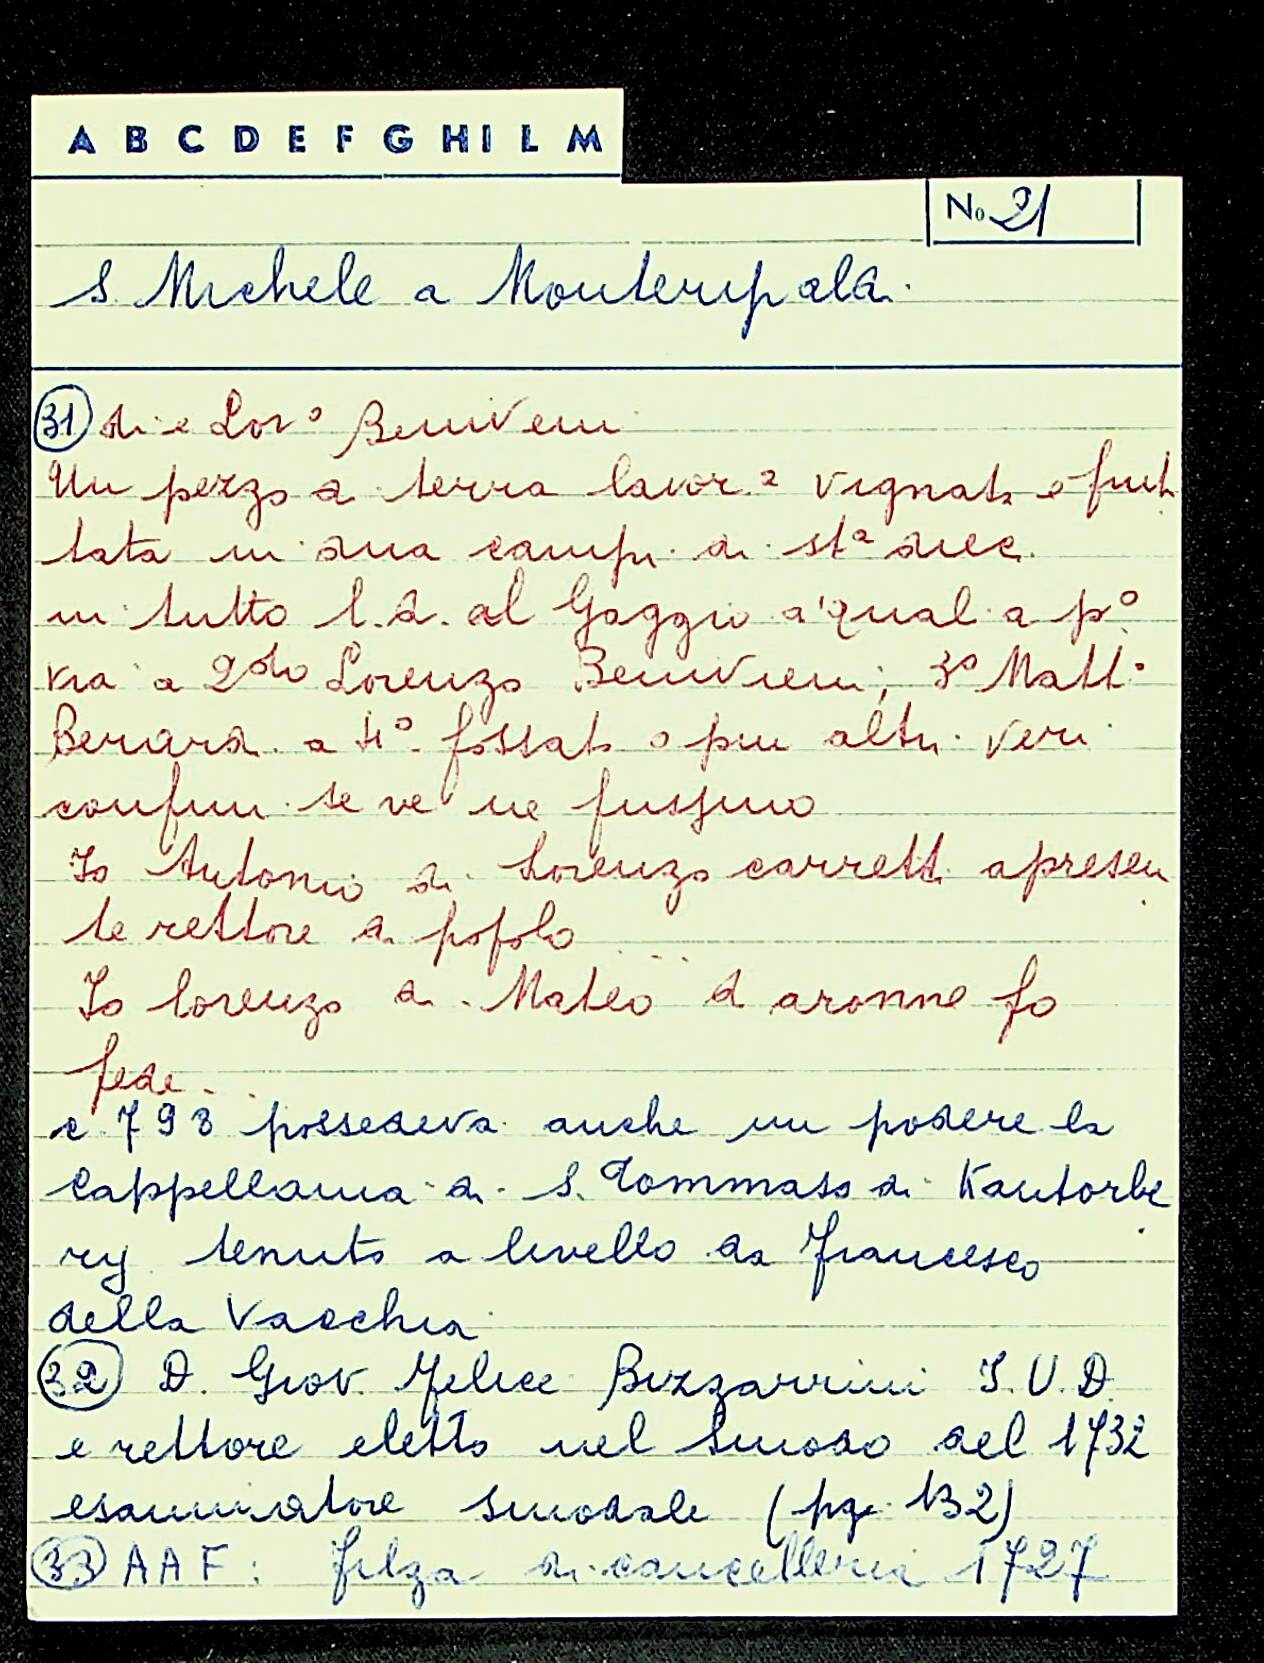 A B C D E F G H I L M
No 21
S. Michele a Monteripaldi
31 di e Lorº Benivieni
Un pezzo di terra lavorª vignata e frut
tata in dua campi di stª diec.
in tutto l.d. al Gaggio a'qual a pº
via a 2do Lorenzo Benivieni, 3º Mattº
Berardi a 4º fossato o più altri veri
confini se ve ne fussino
Io Antonio di Lorenzo carretti apresen
te rettore di popolo
Io lorenzo di Mateo d aronne fo
fede.
c 793 possedeva anche un podere la
Cappellania di S. Tommaso di Kantorbe
ry tenuto a livello da Francesco
della Vacchia
32 D. Giov. Felice Bizzarrini I.U.D.
e rettore eletto nel Sinodo del 1732
esaminatore sinodale (pg. 132)
33 AAF: filza di cancelleria 1727